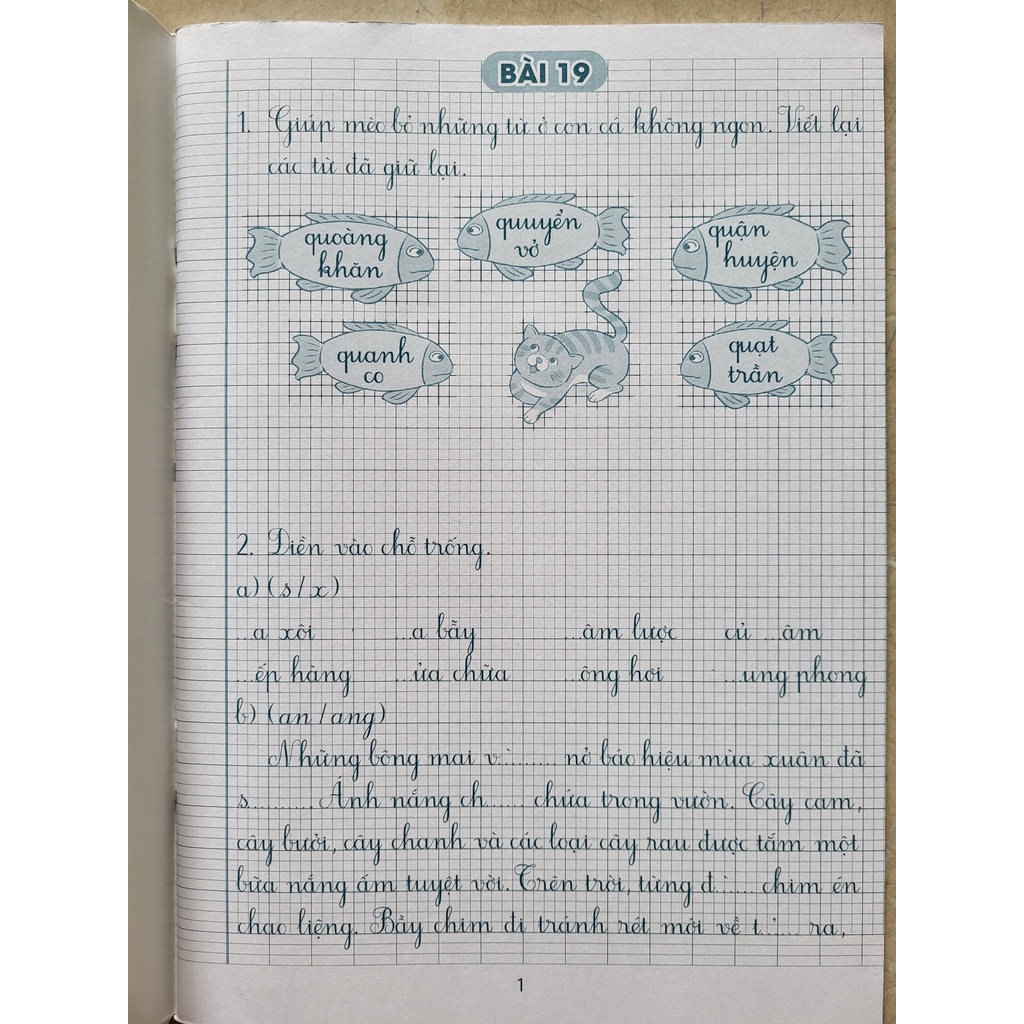 BÀI 19
1. Giúp mèo bỏ những từ ở con cá không ngon. Viết lại
các từ đã giữ lại.
quoàng
khăn
quuyển
vở
quận
huyện
quanh
co
quạt
trần
2. Điền vào chỗ trống.
a) (s/x)
...a xôi ...a bẫy ...âm lược củ ...âm
...ếp hàng ...ửa chữa ...ông hơi ...ung phong
b) (an/ang)
Những bông mai v̀......... nở báo hiệu mùa xuân đã
s.......... Ánh nắng ch...... chứa trong vườn. Cây cam,
cây bưởi, cây chanh và các loại cây rau được tắm một
bữa nắng ấm tuyệt vời. Trên trời, từng đ.̀.... chim én
chao liệng. Bầy chim đi tránh rét mới về t.̉.... ra,
1